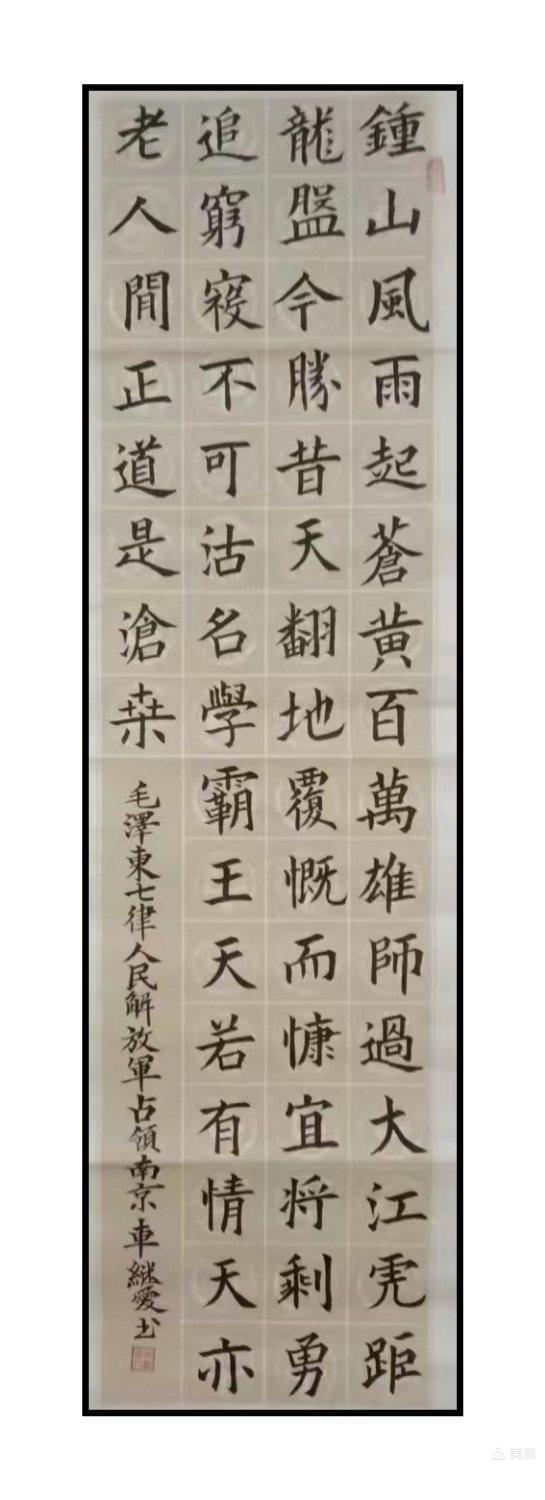 鍾山風雨起蒼黄百萬雄師過大江虎距
龍盤今勝昔天翻地覆慨而慷宜将剩勇
追窮寇不可沽名學霸王天若有情天亦
老人閒正道是滄桒
毛澤東七律人民解放軍占領南京車継愛书
美篇